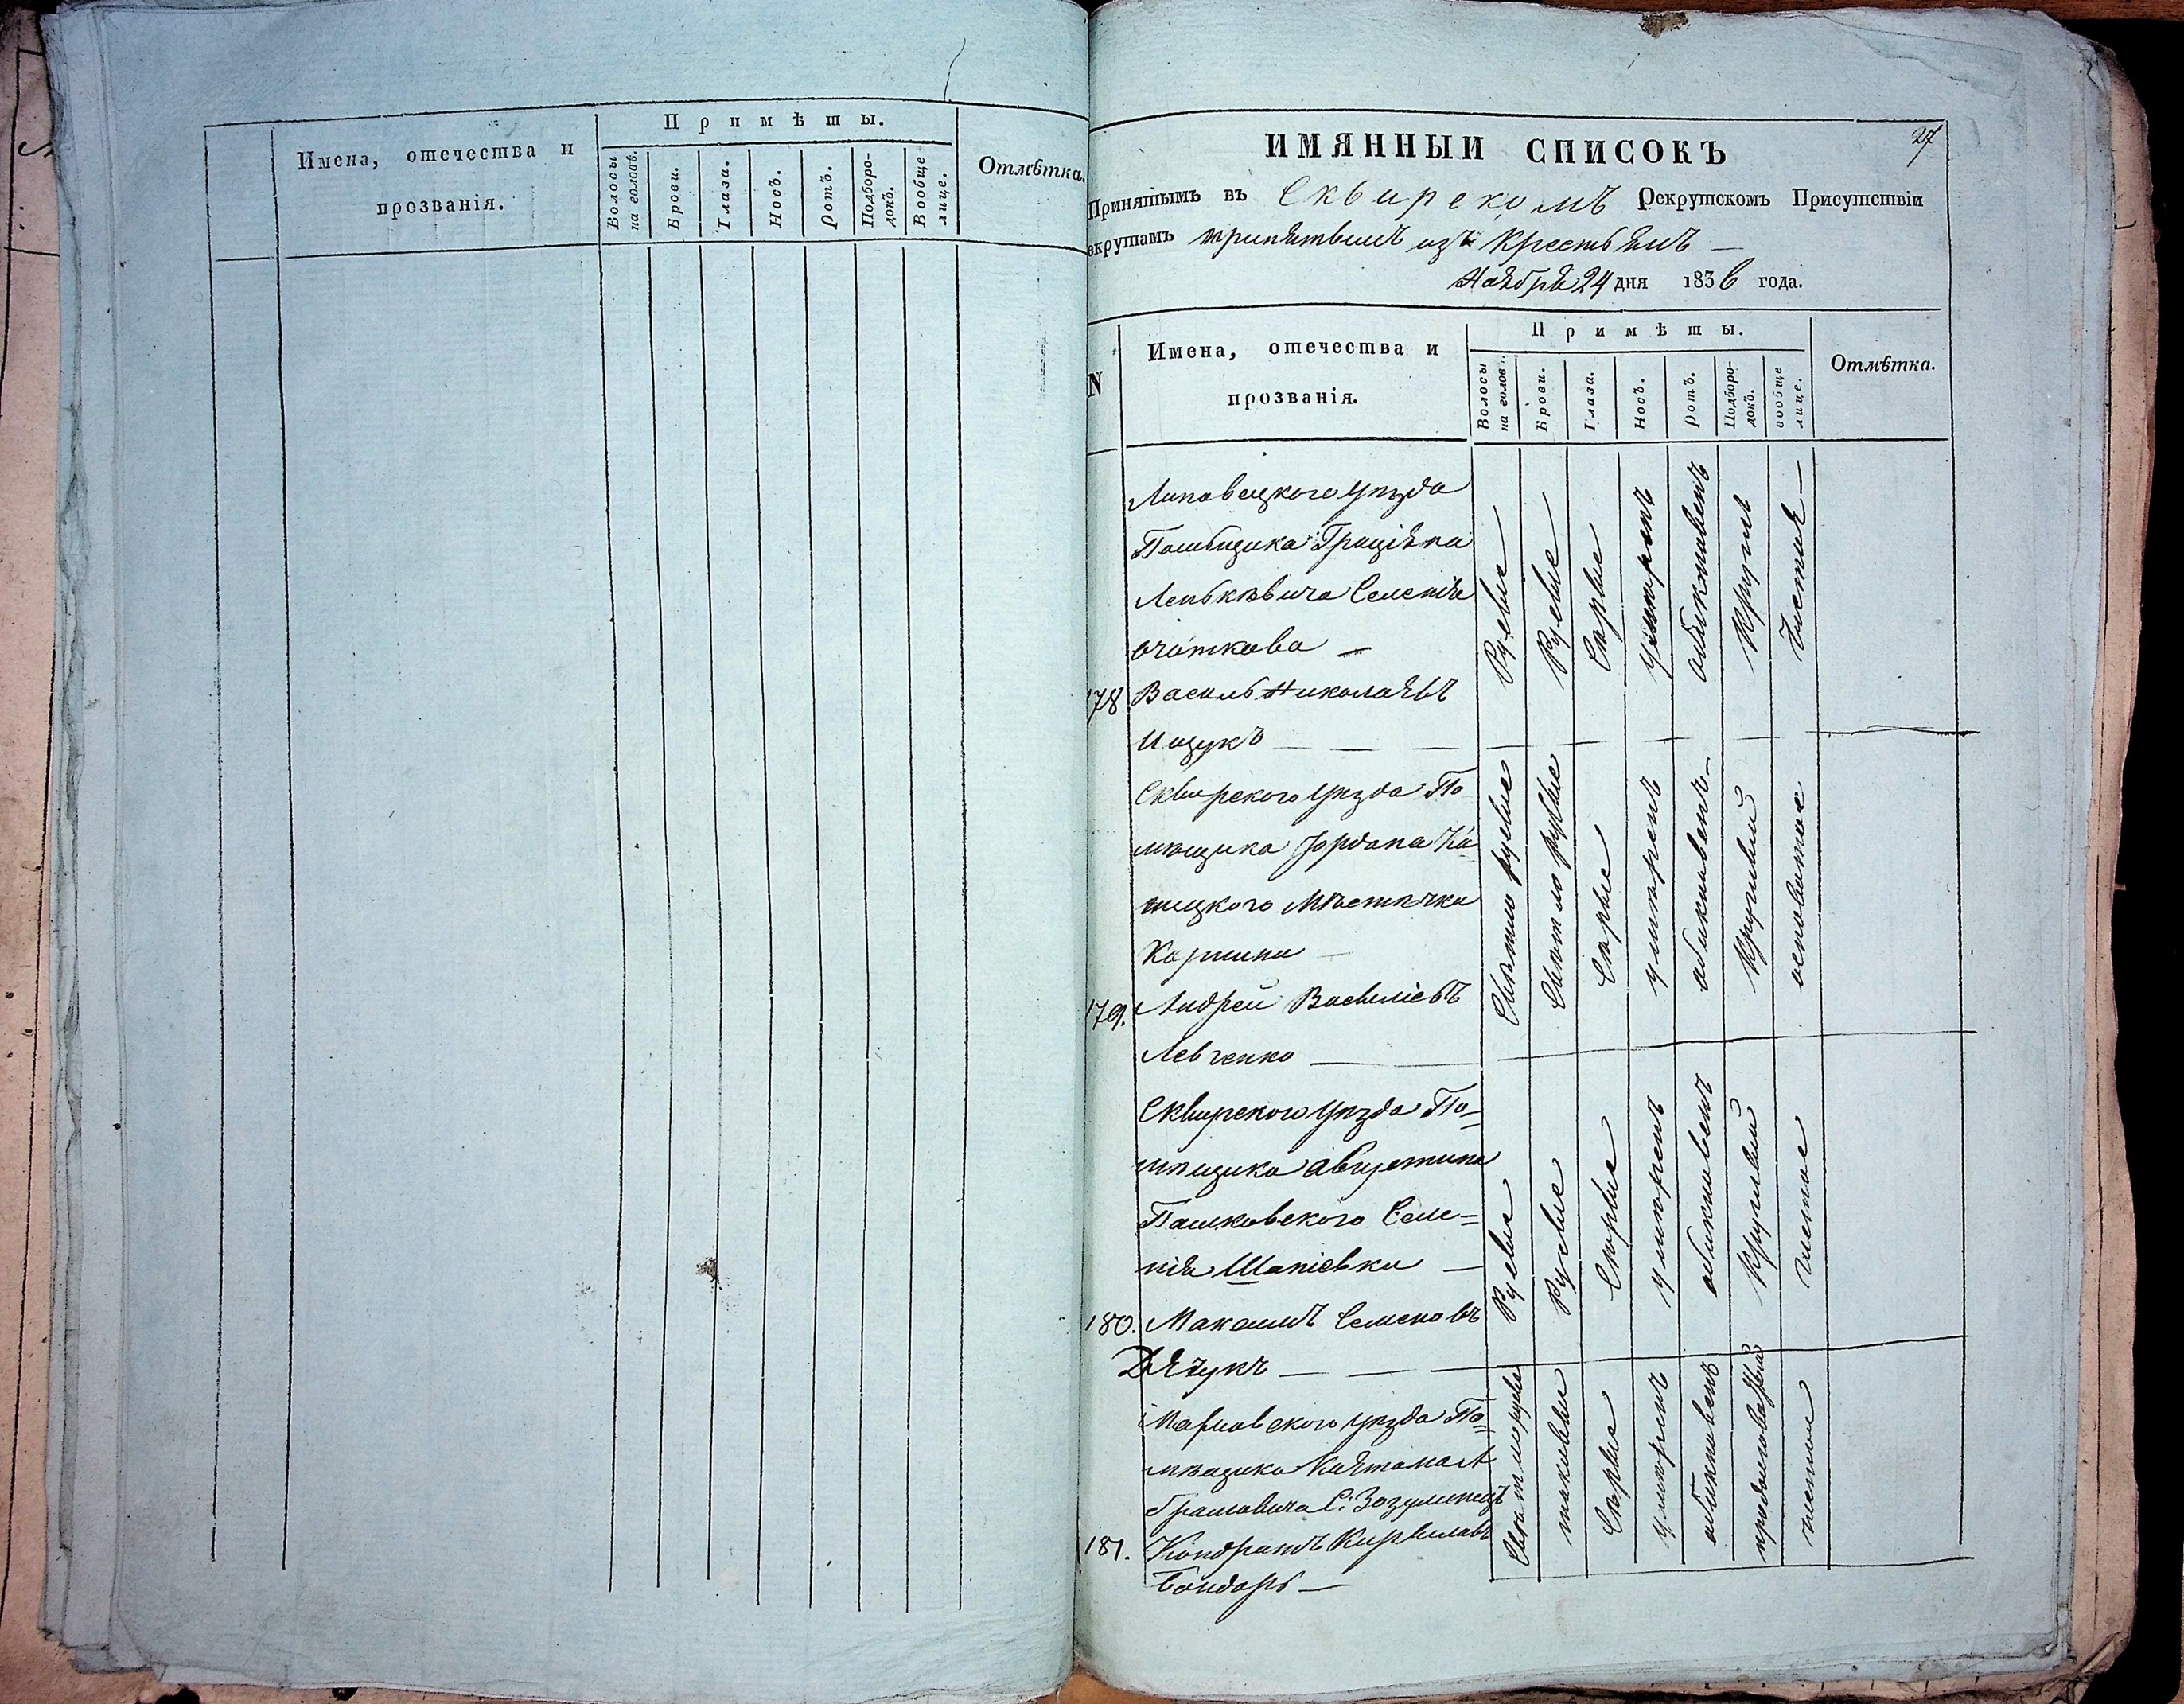 Имена, отечества и
прозванія.
Примѣты.
Волосы на головѣ.
Брови.
Глаза.
Носъ.
Ротъ.
Подбородокъ.
Вообще лице.
Отмѣтка.
27
ИМЯННЫИ СПИСОКЪ
Принятымъ въ Сквирскомъ Рекрутскомъ Присутствіи
екрутамъ принятымъ изъ Крестьянъ —
Наября 24 дня 1836 года.
N
Имена, отечества и
прозванія.
Примѣты.
Волосы на голов.
Брови.
Глаза.
Носъ.
Ротъ.
Подбородокъ.
ообще лице.
Отмѣтка.
Липовецкого уѣзда
Помѣщика Граціяна
Леньквѣича Селенія
очиткова —
178 Василь Николаявъ
Ищукъ — — —
Русые
Русые
Сѣрые
умѣренъ
обикновенъ
Кругл
Чистыя —
Сквирского уѣзда По
мѣщика Іордана Ка
ницкого Мѣстѣчка
Коршина —
179. Андрей Василіевъ
Левченко —
Свѣтло русые
Свѣтло русые
Сѣрые
умѣренъ
обикновенъ —
Круглый
осповатое
Сквирского уѣзда По-
мѣщика Августина
Пашковского Селе=
нія Шапіевки —
180. Максимъ Семеновъ
Дячукъ — —
Русые
Русые
Сѣрые
умѣренъ
обикновенъ
Круглый
чистое
уѣзда По=
мѣщика Каятана А
брамовича С: Зозулинецъ
181. Кондратъ Кириловъ
Бондарь —
Свѣтлорусые
таковыи
Сѣрые
умѣренъ
обикновенъ
продолговатый
чистое